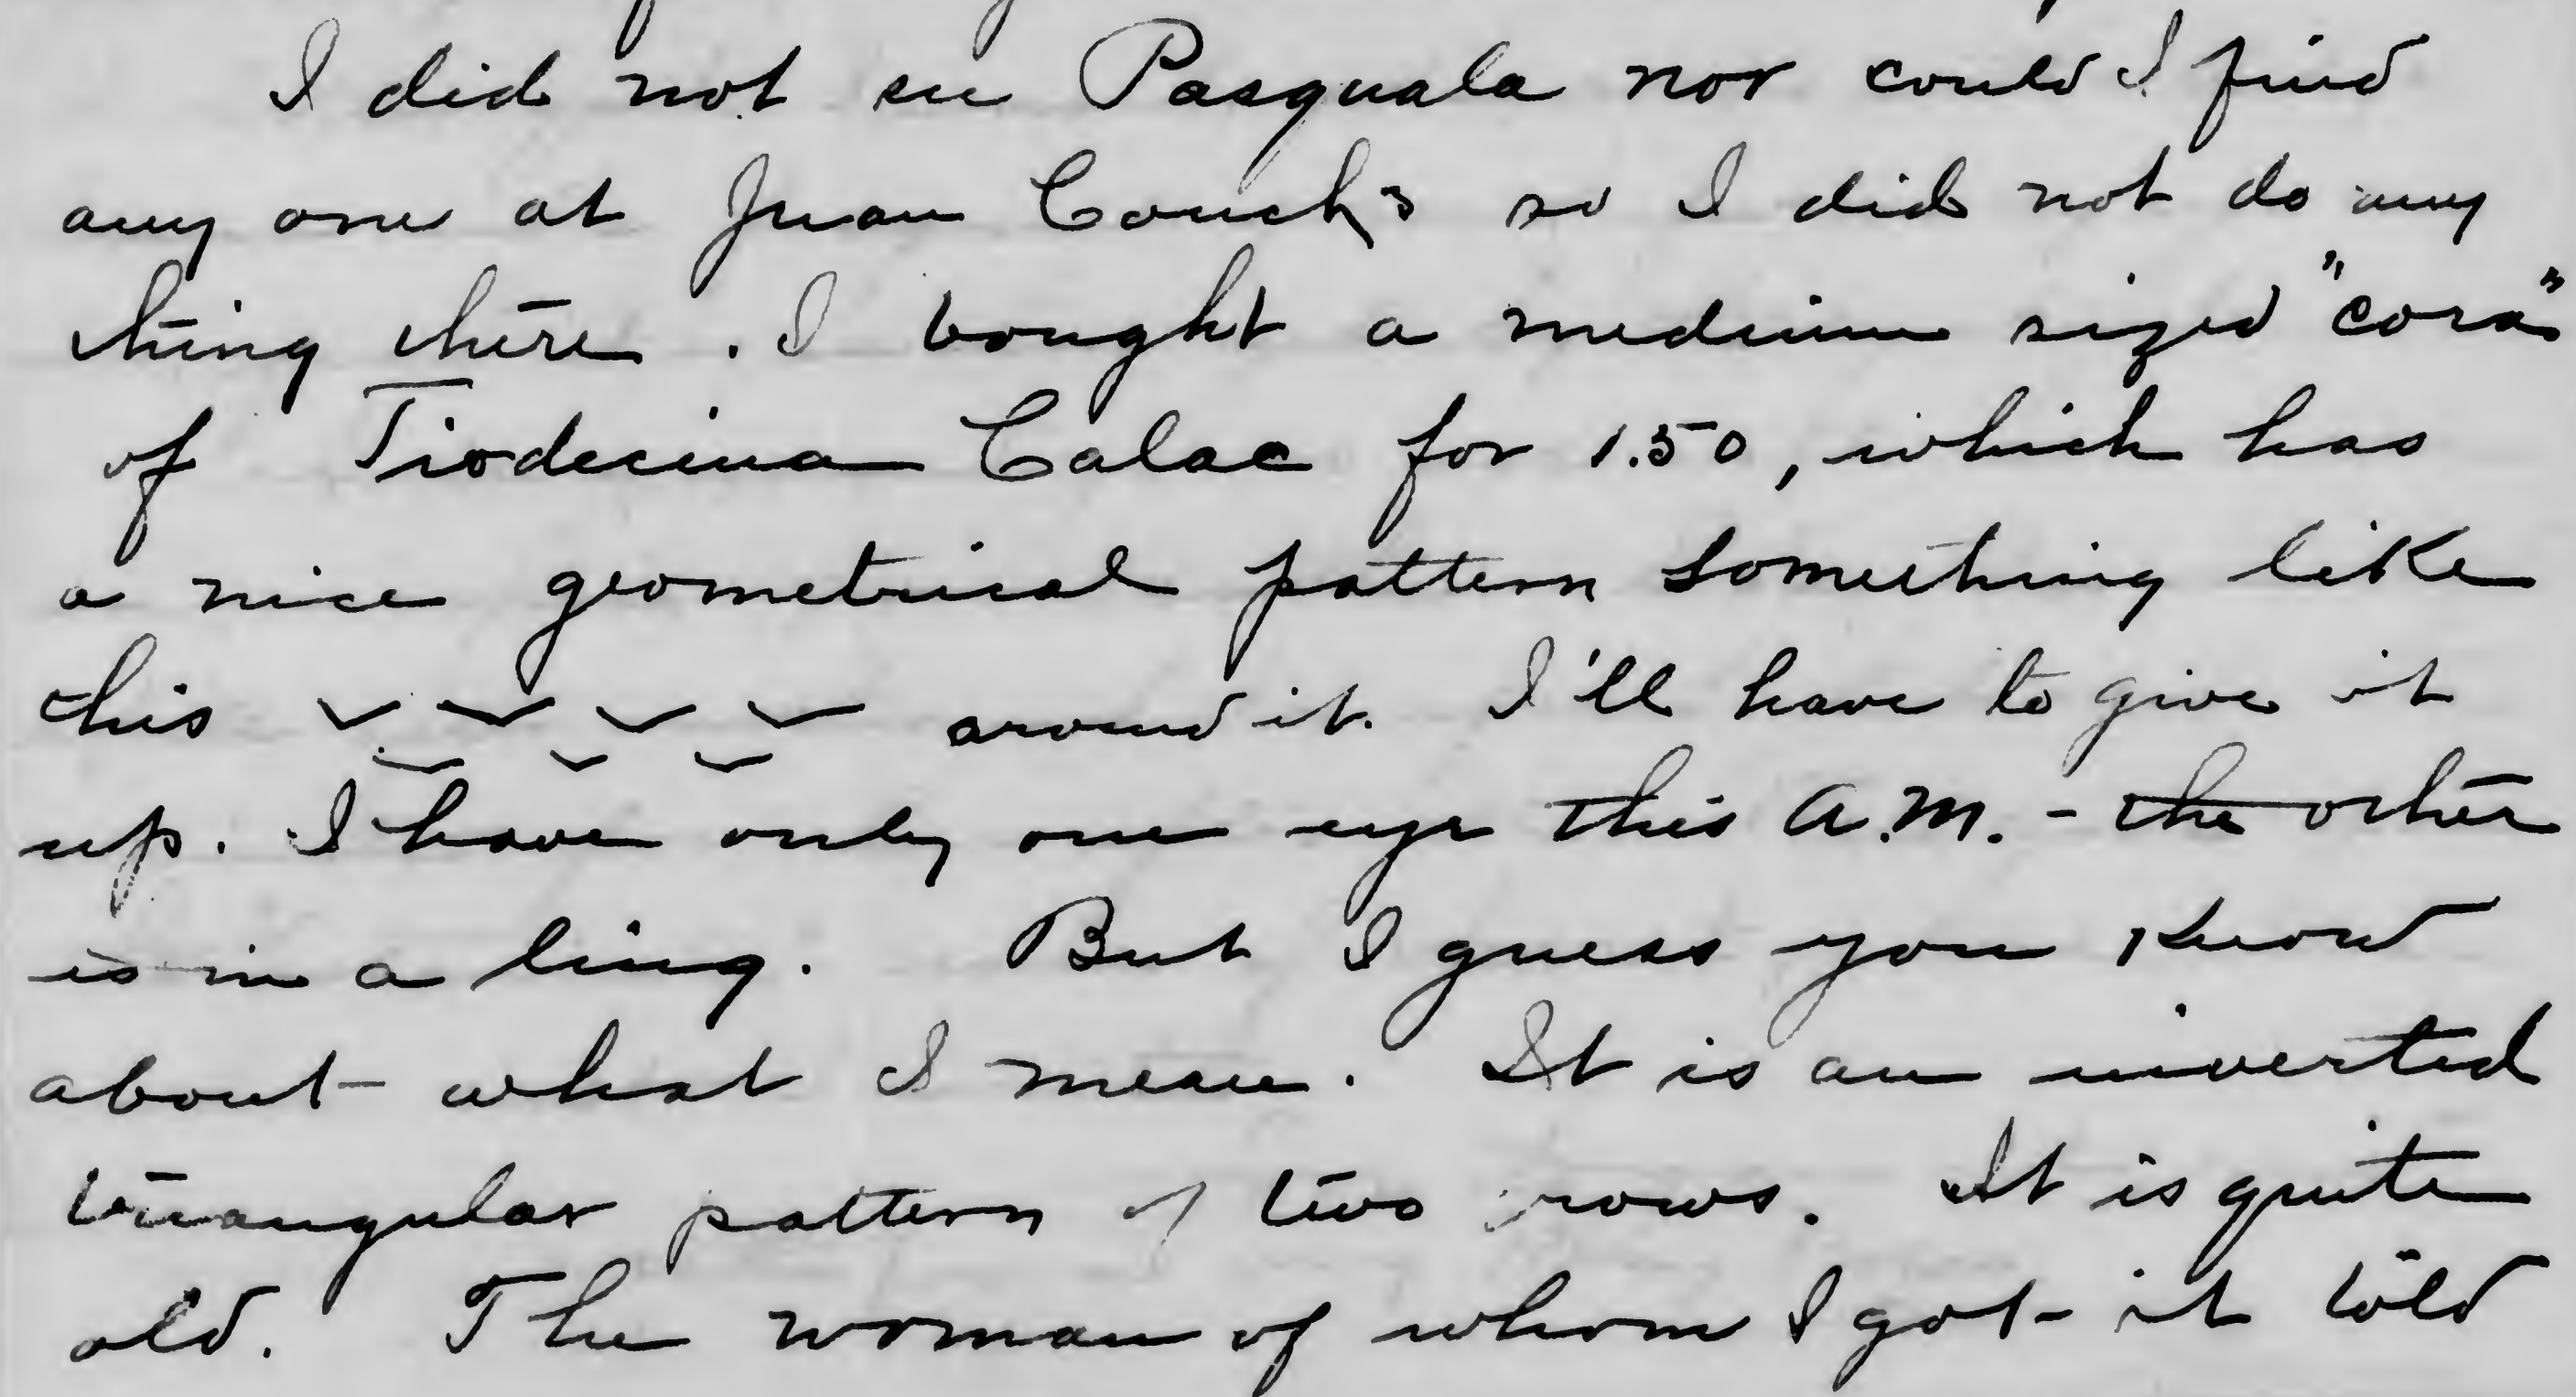 I did not see Pasquala nor could I find
any one at Juan Couch's so I did not do any
thing there. I bought a medium sized "cora"
of Tiodecina Calac for 1.50, which has
a nice geometrical pattern something like
this around it. I'll have to give it
up. I have only one eye this A.M. - the other
is in a ling. But I guess you know
about what I mean. It is an inverted
triangular pattern of two rows. It is quite
old. The woman of whom I got it told